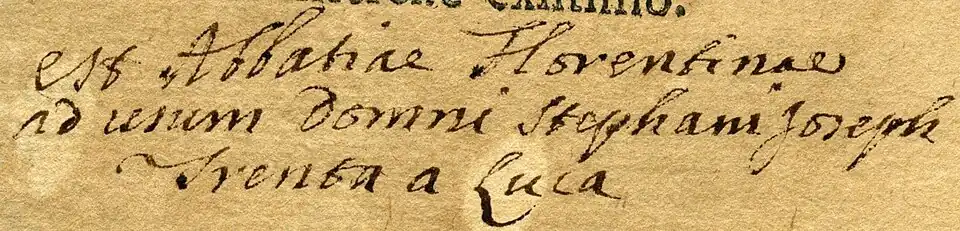 est Abbatiae Florentinae
ad usum Domni Stephani Joseph
Trenta a Luca